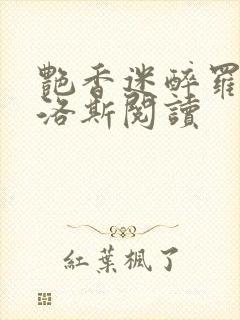 艷香迷醉羅
洛斯閱讀
紅葉楓了